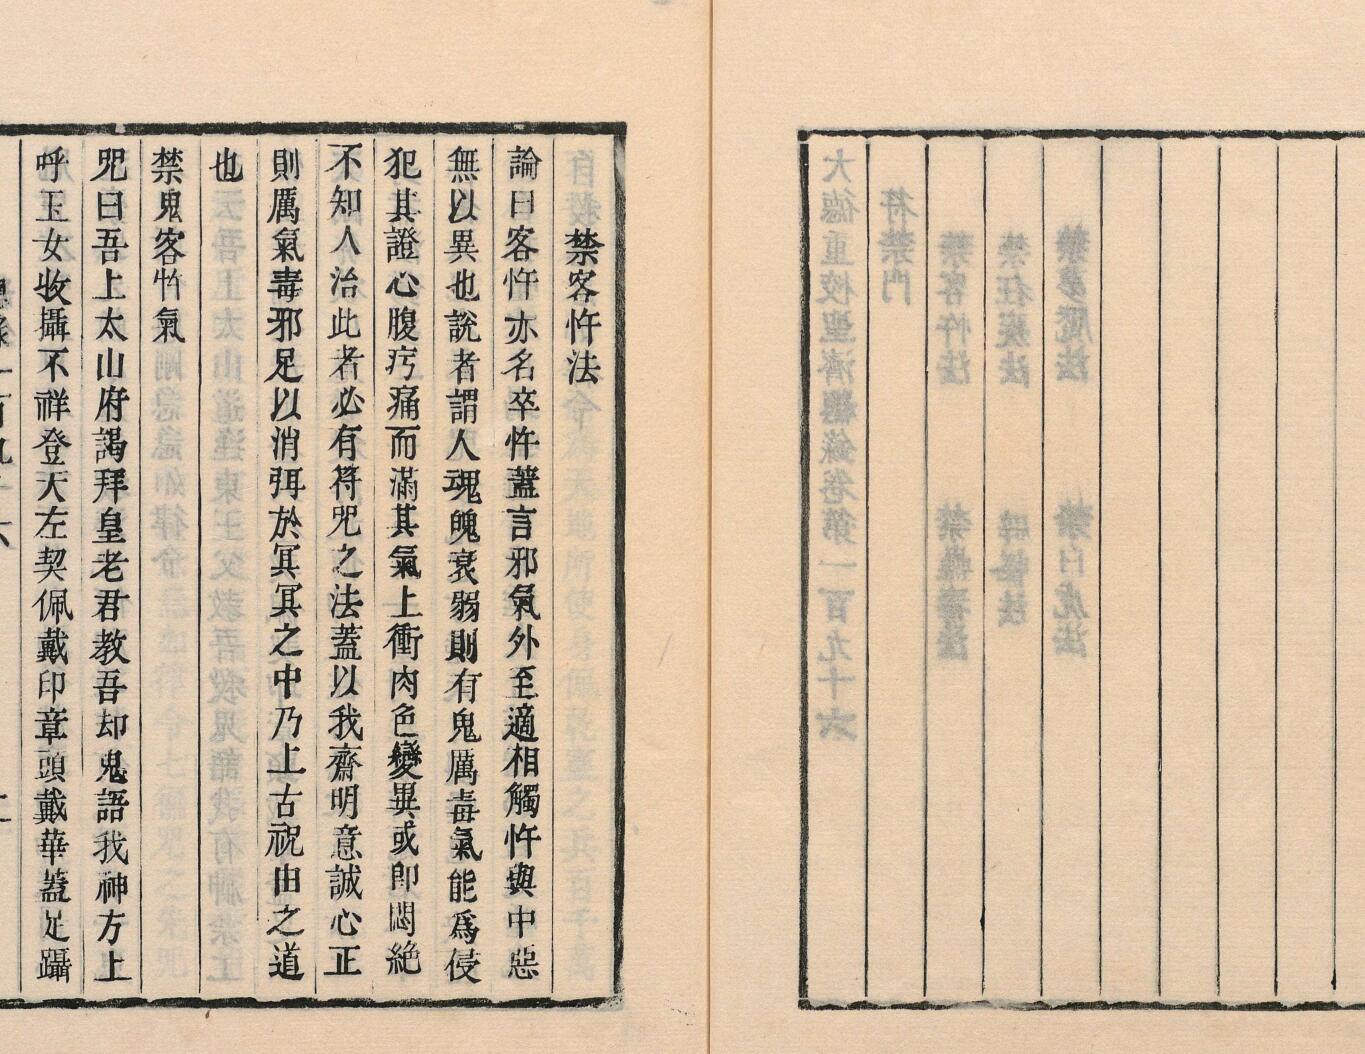 禁客忤法
論曰客忤亦名卒忤蓋言邪氣外至適相觸忤與中惡
無以異也說者謂人魂魄衰弱則有鬼厲毒氣能爲侵
犯其證心腹㽲痛而滿其氣上衝肉色變異或即悶絶
不知人治此者必有符咒之法蓋以我齋明意誠心正
則厲氣毒邪足以消弭於冥冥之中乃上古祝由之道
也
禁鬼客忤氣
咒曰吾上太山府謁拜皇老君教吾却鬼語我神方上
呼玉女收攝不祥登天左契佩戴印章頭戴華蓋足躡
大德重校聖濟總錄卷第一百九十六
符禁門
禁客忤法 禁蠱毒法
禁狂瘧法
禁夢魘法 禁白虎法